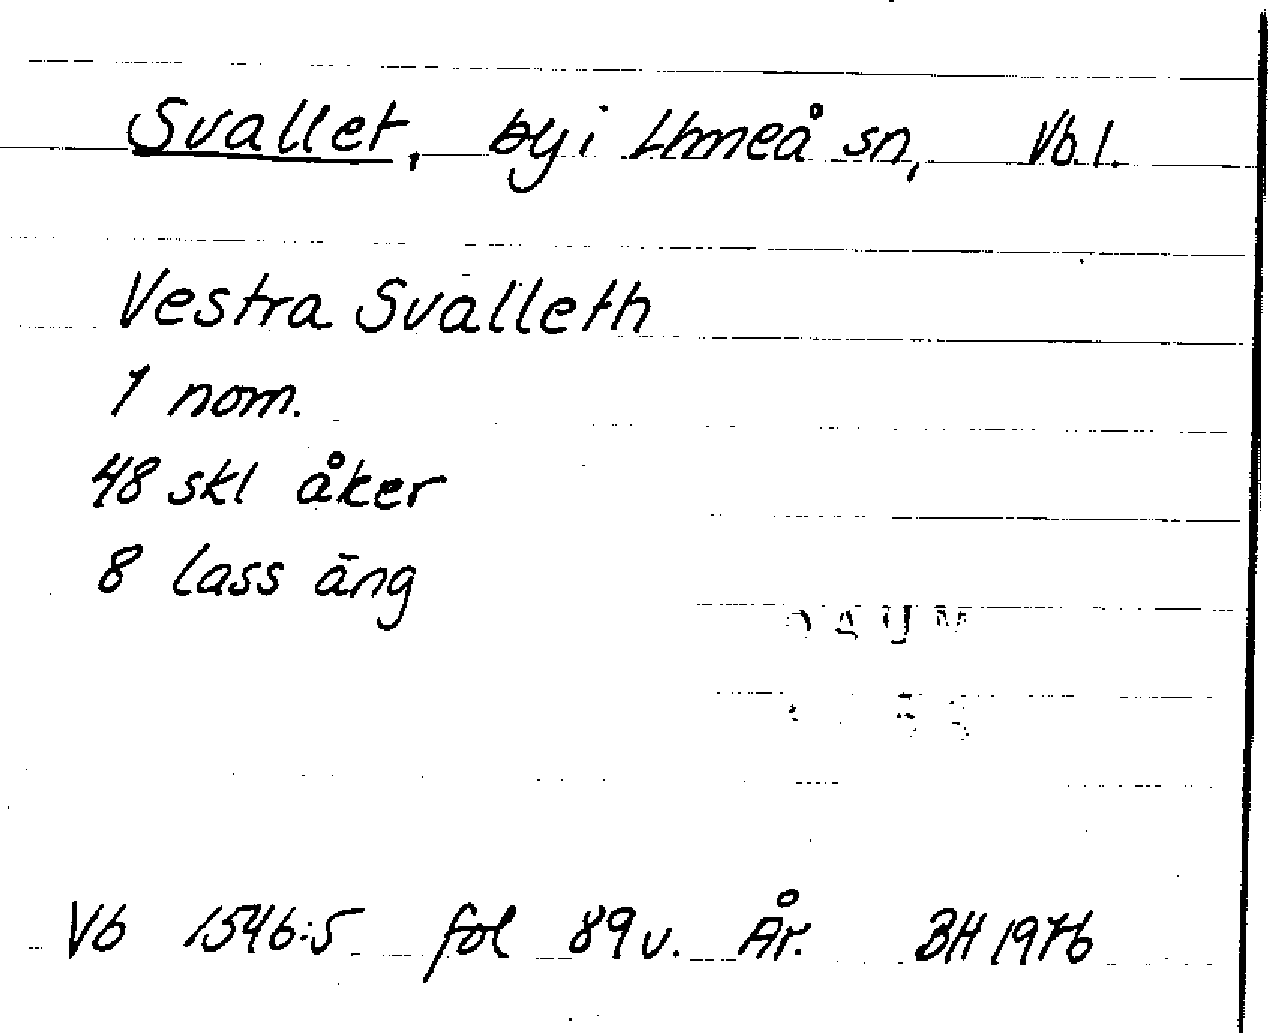 Svallet, by i Umeå sn, Vb l.
Vestra Svalleth
1 nom.
48 skl åker
8 lass äng
Vb 1546:5 fol 89 v. År. BH 1976